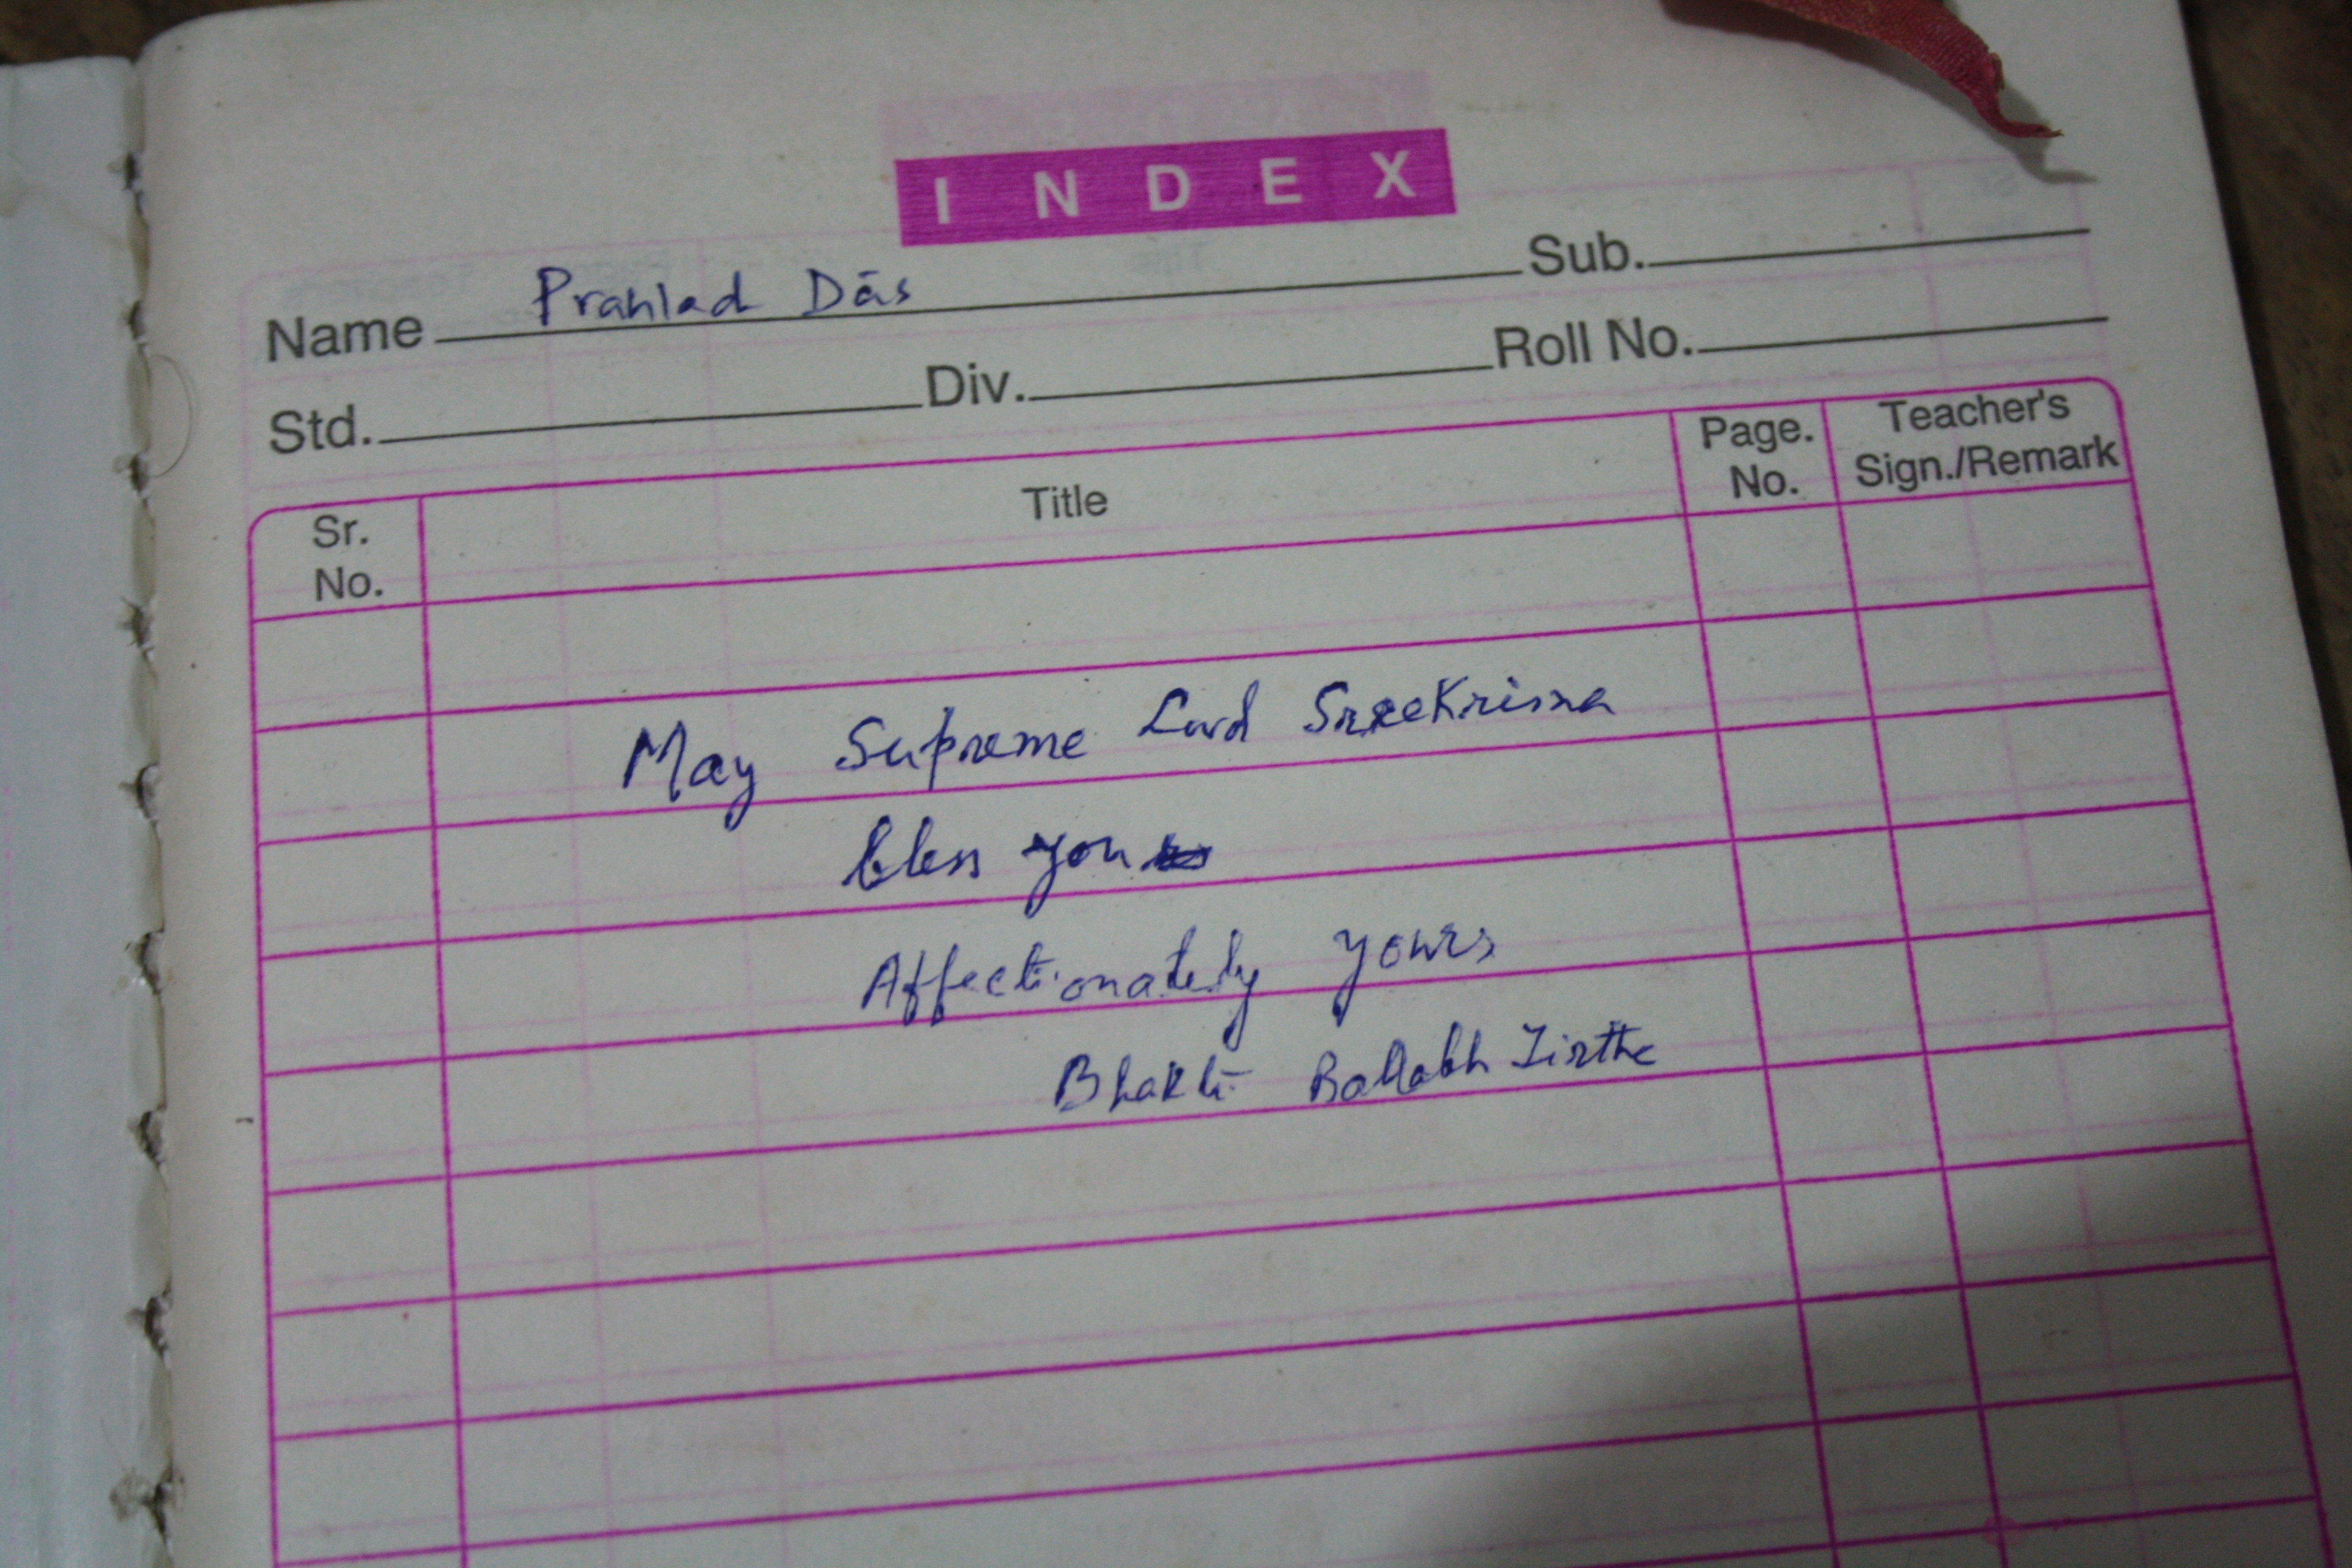 INDEX
Name Prahlad Dās Sub.
Std. Div. Roll No.
Sr. No. Title Page. No. Teacher's Sign./Remark
May Supreme Lord SreeKrisna
bless you
Affectionately yours
Bhakti Ballabh Tirtha